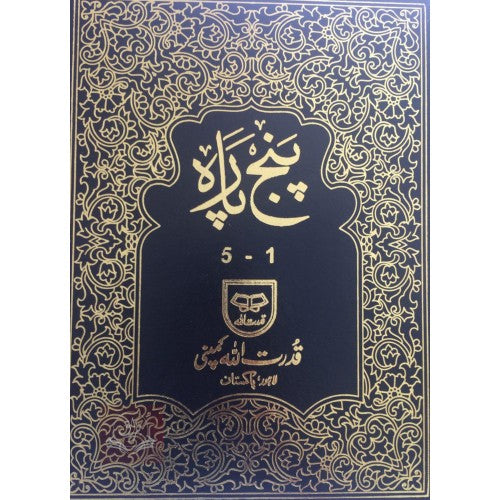 پنج پارہ
5 - 1
قدرت اللہ
قدرت اللہ کمپنی
لاہور پاکستان